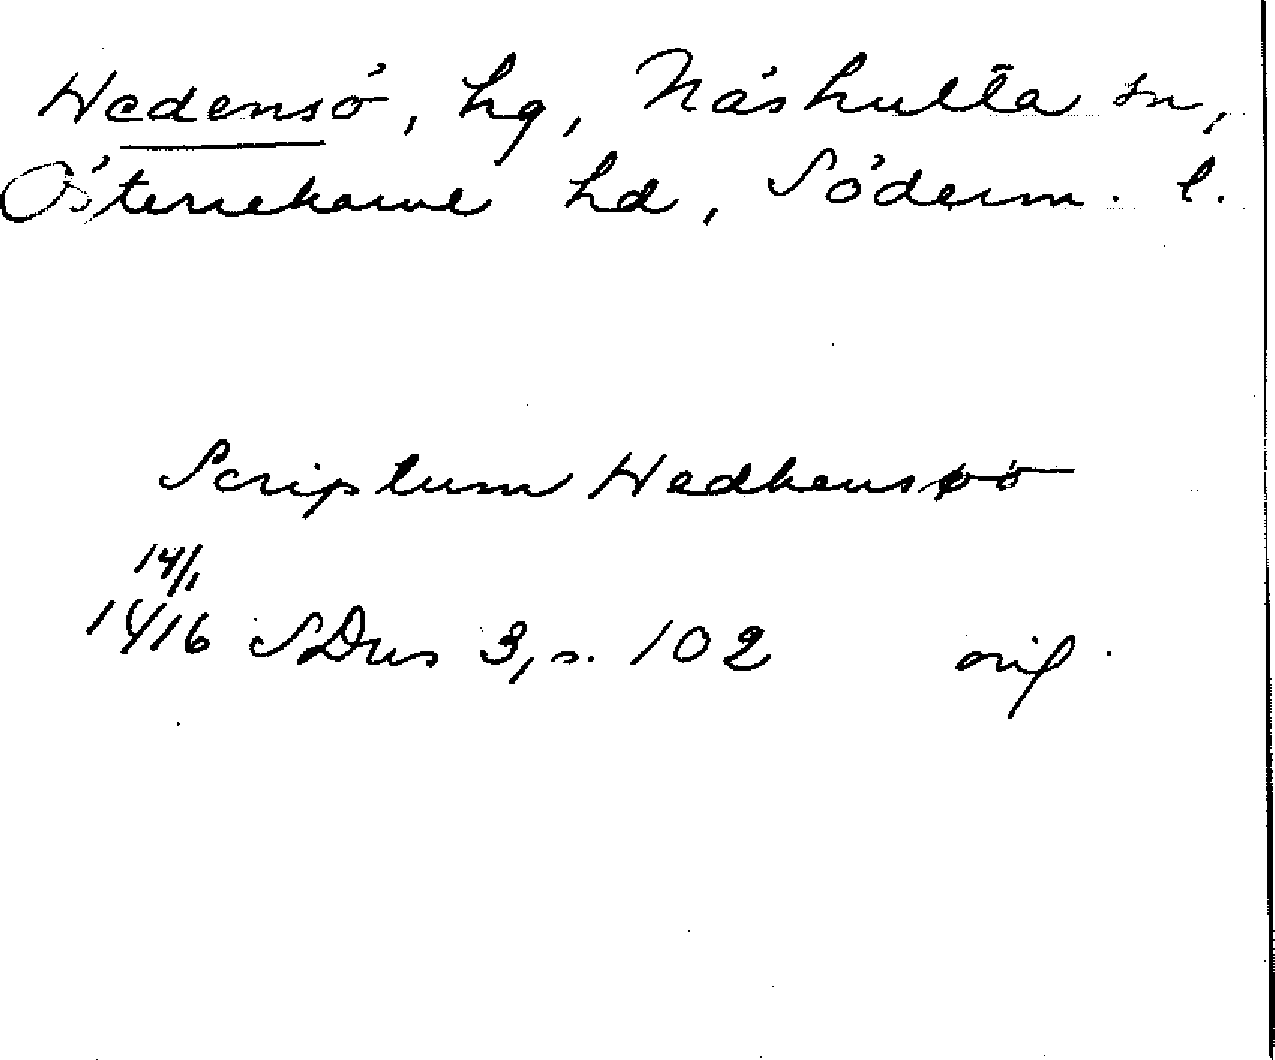 Hedensö, hg, Näshulta sn,
Österrekarne hd, Söderm. l.
Scriptum Hedhensøö
14/1
1416 SDns 3, s. 102 orig.